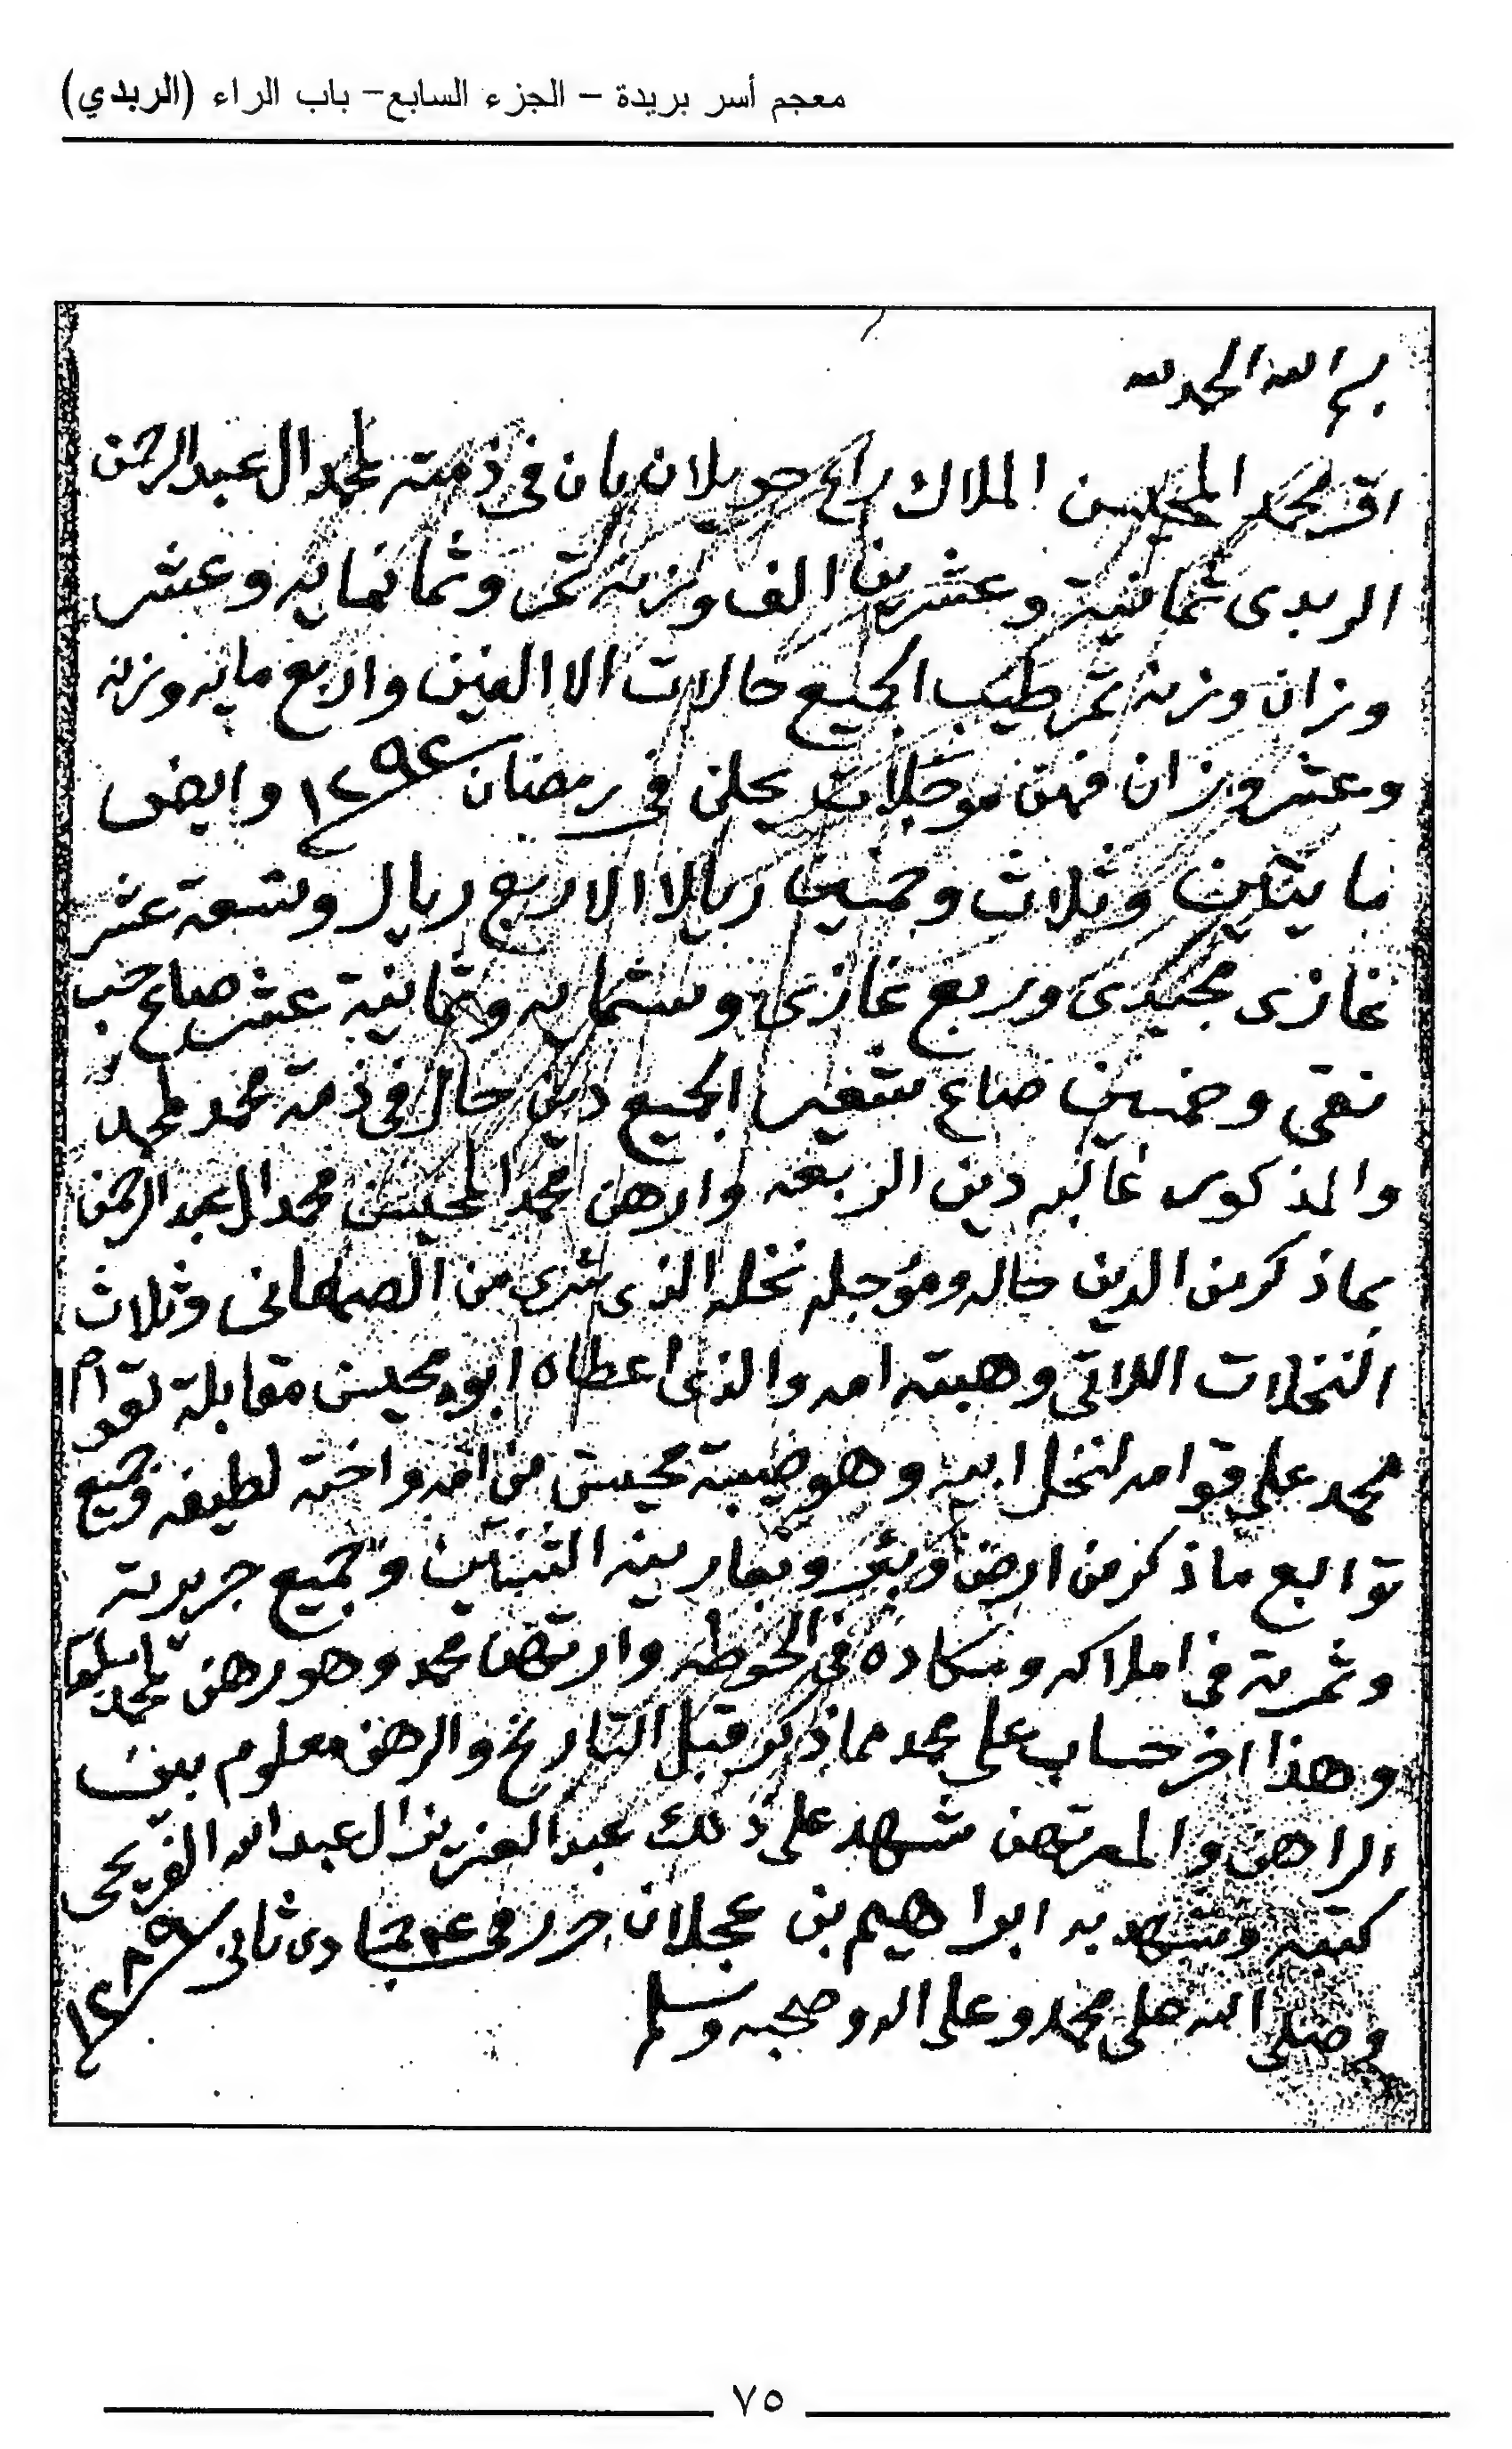 معجم أسر بريدة – الجزء السابع– باب الراء (الربدي)
بسم الله الحمد لله
اقر محمد المحيسن الملاك راعي حويلان بان في ذمته لمحمد ال عبدالرحمن
الربدى ثمانية وعشرين الف وزنه تمر وثمانمايه وعشر
وزان وزنه تمر طيب الجميع حالات الا الفين واربع مايه وزنه
وعشر وزان فهن موجلات يحلن في رمضان ١٢٩٤ وايضى
مايتين وثلاث وخمسين ريالا الا اربع ريال وتسعة عشر
غازى مجيدى وربع غازى وستمايه وثمانية عشر صاع حب
نقى وخمسين صاع شعير الجميع دين حال في ذمة محمد لمحمد
والمذكور غالبه دين الربعه وارهن محمد المحيسن محمد ال عبدالرحمن
بماذكر من الدين حاله ومؤجله نخله الذى شرى من الصلعانى وثلاث
النخلات اللاتي وهبته امه والذى اعطاه ابوه محيسن مقابلة لقوام
محمد على قوامه لنخل ابيه وهو صيبة محيسن من امه واخته لطيفه وجميع
توابع ماذكر من ارض وبئر وبعارينه الثنتين وجميع جريرته
وثمرته في املاكه ومكاده في الحوطه وارتهن محمد وهو رهن لمحمد
وهذا اخر حساب على محمد مماذكر قبل التاريخ والرهن معلوم بين
الراهن والمرتهن شهد على ذلك عبدالعزيز ال عبدالله الفريحى
كتبه وشهد به ابراهيم بن عجلان حرر في جمادى ثاني
وصلى الله على محمد وعلى اله وصحبه وسلم
٧٥